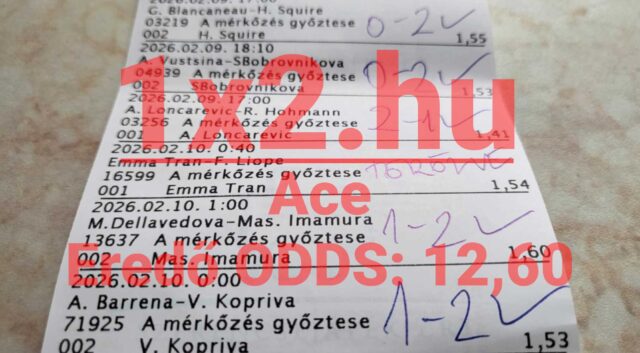 2026.02.09. 17:00
G. Blancaneau-H. Squire
03219 A mérkőzés győztese
002 H. Squire 1,55
0-2
2026.02.09. 18:10
A. Vustsina-SBobrovnikova
04939 A mérkőzés győztese
002 SBobrovnikova 1,53
0-2
2026.02.09. 17:00
A. Loncarevic-R. Hohmann
03256 A mérkőzés győztese
001 A. Loncarevic 1,41
2-1
2026.02.10. 0:40
Emma Tran-F. Liope
16599 A mérkőzés győztese
001 Emma Tran 1,54
TÖRÖLVE
2026.02.10. 1:00
M.Dellavedova-Mas. Imamura
13637 A mérkőzés győztese
002 Mas. Imamura 1,60
1-2
2026.02.10. 0:00
A. Barrena-V. Kopriva
71925 A mérkőzés győztese
002 V. Kopriva 1,53
1-2
1x2.hu
Ace
Eredő ODDS: 12,60